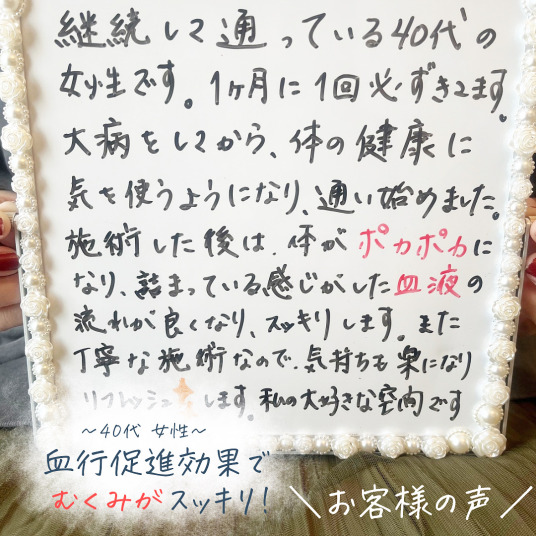 継続して通っている40代の
女性です。1ヶ月に1回必ずきてます。
大病をしてから、体の健康に
気を使うようになり、通い始めました。
施術した後は、体がポカポカに
なり、詰まっている感じがした血液の
流れが良くなり、スッキリします。また
丁寧な施術なので、気持ちも楽になり
リフレッシュします。私の大好きな空間です
〜40代 女性〜
血行促進効果で
むくみがスッキリ!
＼お客様の声／